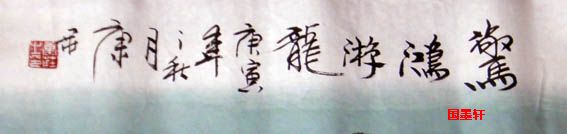 驚鴻游龍
庚寅年
之秋
月康
国墨轩